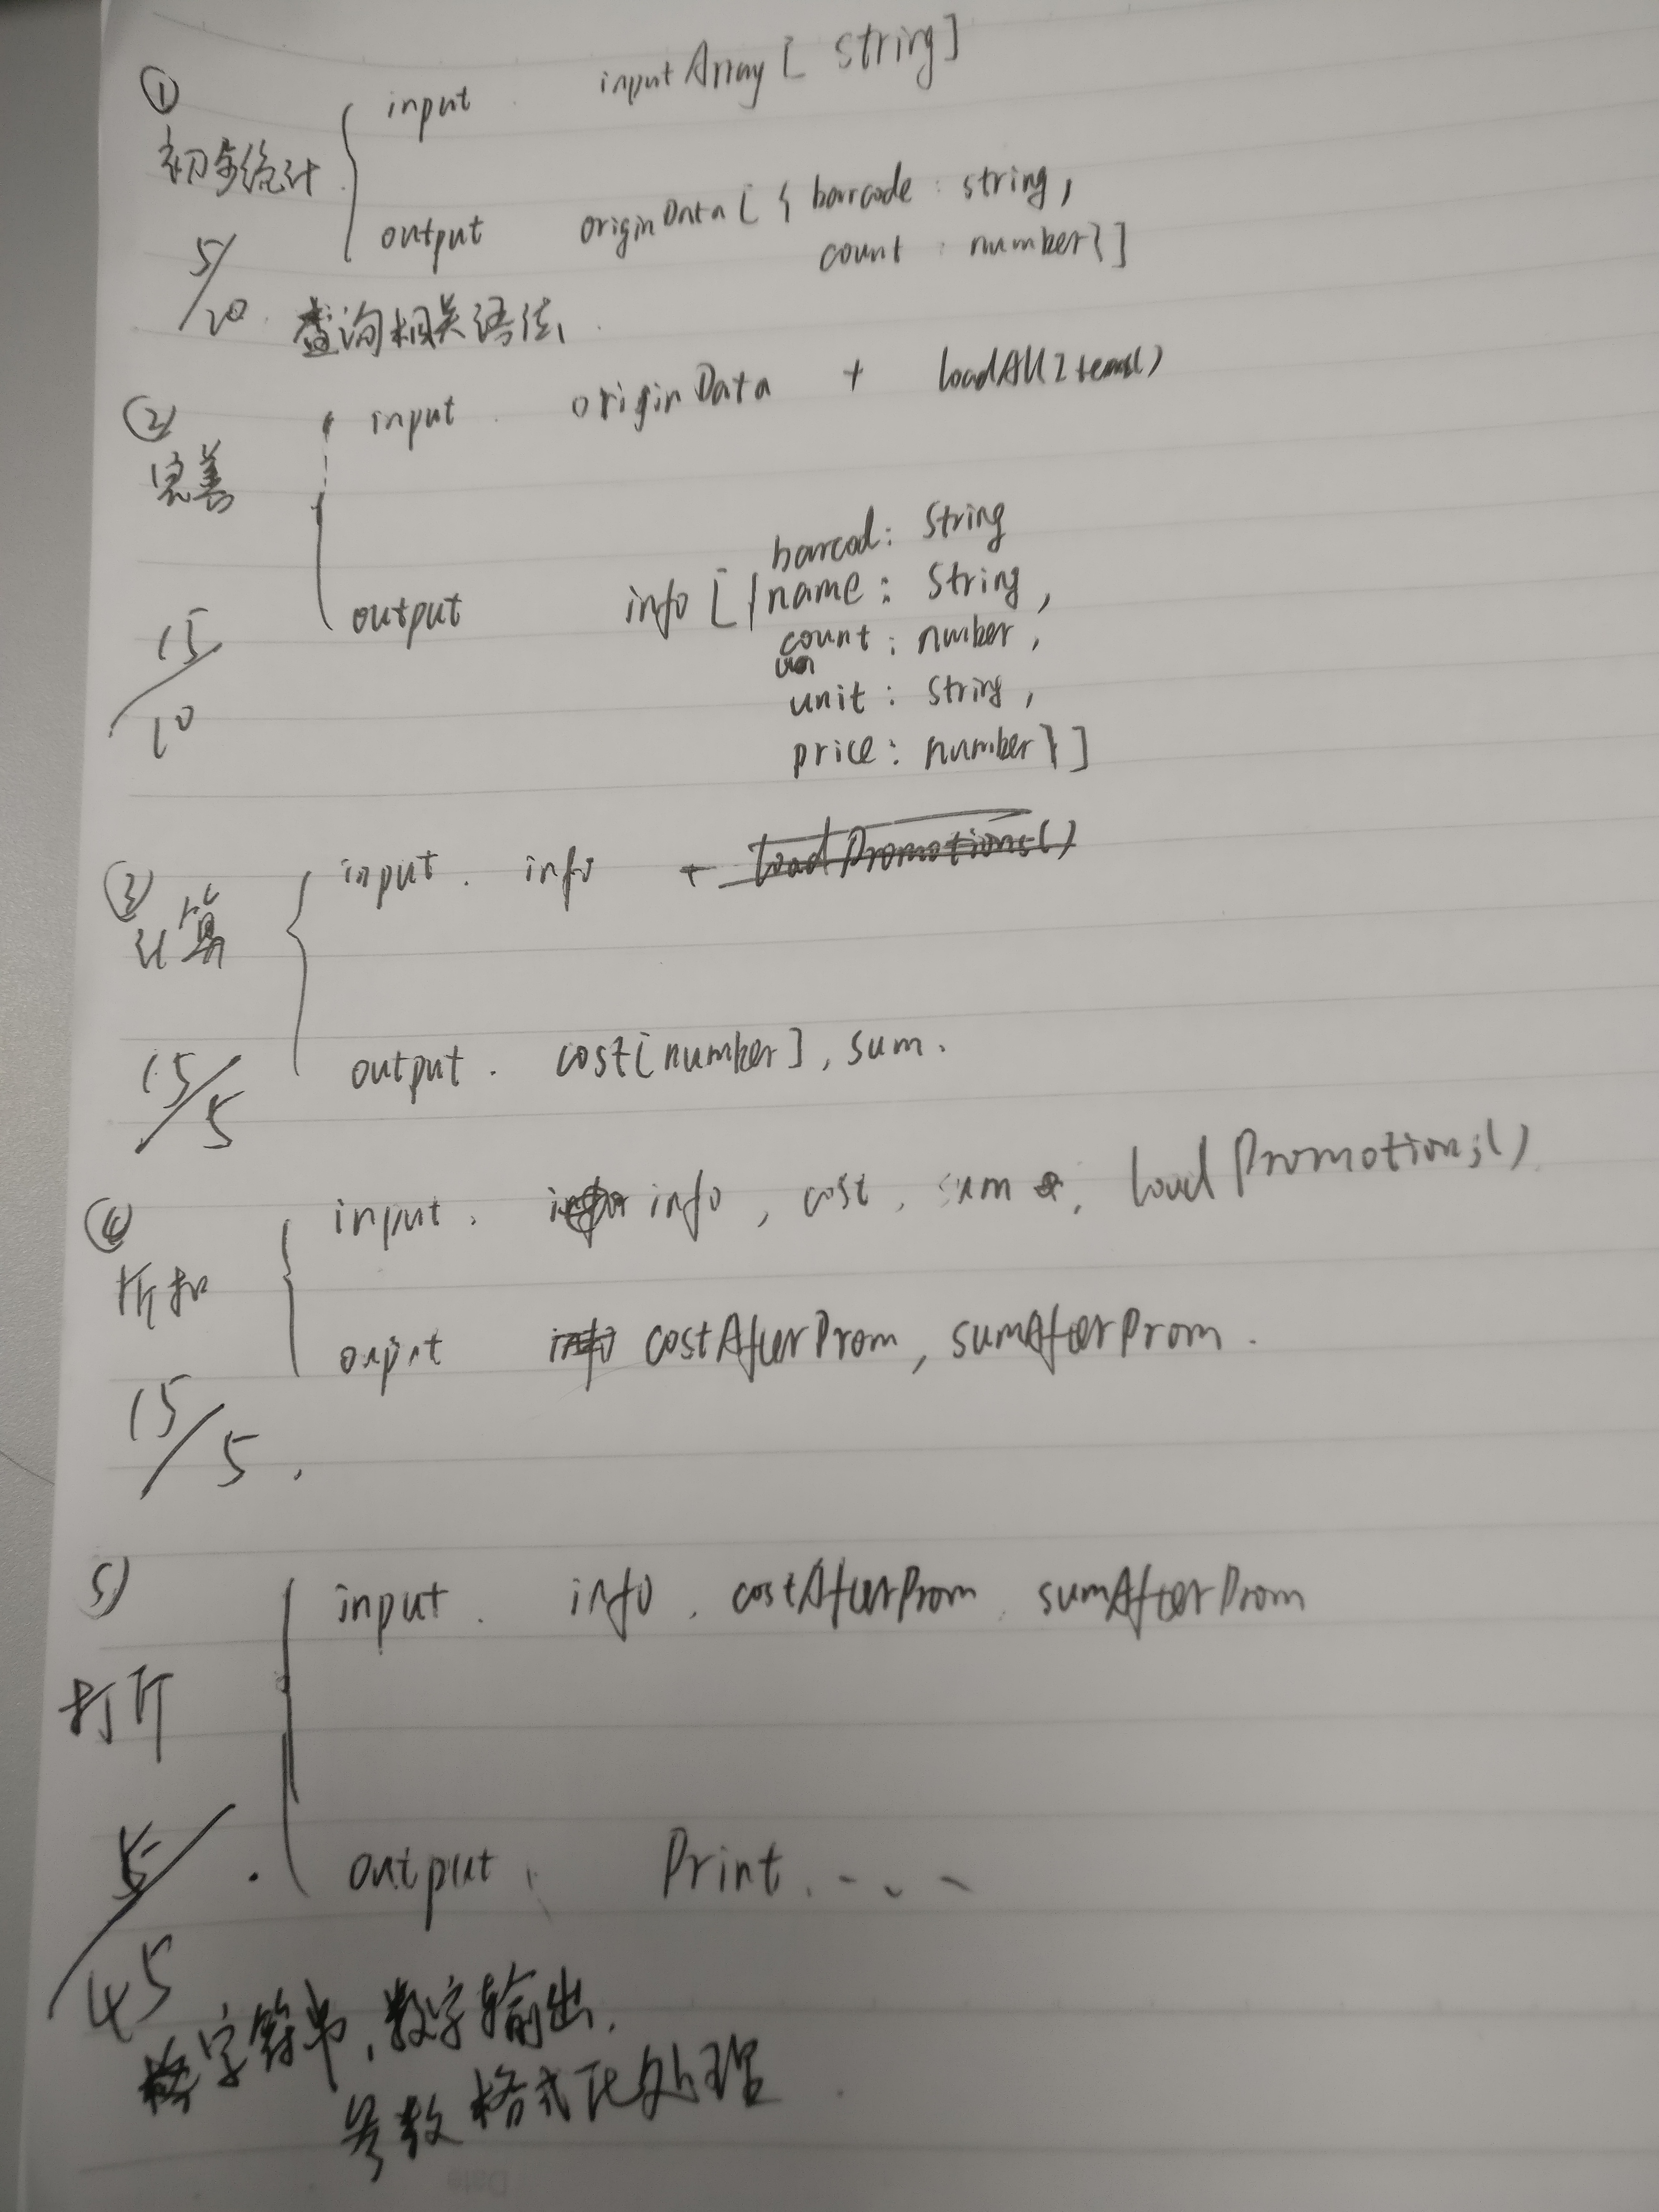 ①
input. inputArray [ string]
初步统计
output originData [ { barcode : string,
count : number}]
5/20. 查询相关语法.
② input. originData + loadAllItems()
完善
barcod: String
output info [ {name : String,
count : number,
unit : string,
price : number}]
15/10
③ input. info + loadPromotions()
计算
output. cost[number], sum.
15/5
④ input. info, cost, sum, loadPromotions()
折扣
ouput costAfterProm, sumAfterProm.
15/5.
5)
input. info. costAfterProm. sumAfterProm
打折
output. Print.....
5/45
字符串,数字输出.
格式化处理.